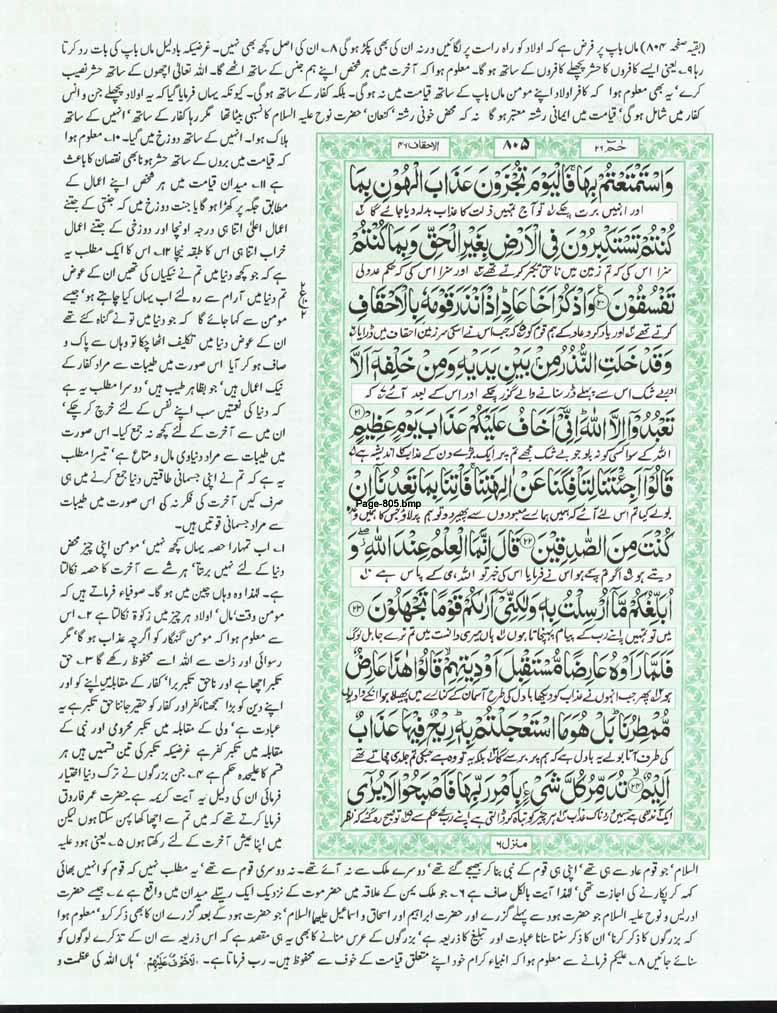 (بقیہ صفحہ ۸۰۴) ماں باپ پر فرض ہے کہ اولاد کو راہ راست پر لگائیں ورنہ ان کی بھی پکڑ ہو گی ۸۔ ان کی اصل کچھ بھی نہیں۔ غرضیکہ بادلیل ماں باپ کی بات رد کرتا
رہا ۹۔ یعنی ایسے کافروں کا حشر پچھلے کافروں کے ساتھ ہو گا۔ معلوم ہوا کہ آخرت میں ہر شخص اپنے ہم جنس کے ساتھ اٹھے گا۔ اللہ تعالیٰ اچھوں کے ساتھ حشر نصیب
کرے، یہ بھی معلوم ہوا کہ کافر اولاد اپنے مومن ماں باپ کے ساتھ قیامت میں نہ ہو گی۔ بلکہ کفار کے ساتھ ہو گی۔ کیونکہ یہاں فرمایا گیا کہ یہ اولاد پچھلے جن و انس
کفار میں شامل ہو گی، قیامت میں ایمانی رشتہ معتبر ہو گا نہ کہ محض خونی رشتہ، کنعان، حضرت نوح علیہ السلام کا نسبی بیٹا تھا مگر رہا کفار کے ساتھ، انہیں کے ساتھ
ہلاک ہوا۔ انہیں کے ساتھ دوزخ میں گیا۔ ۱۰۔ معلوم ہوا
کہ قیامت میں بروں کے ساتھ حشر ہونا بھی نقصان کا باعث
ہے ۱۱۔ میدان قیامت میں ہر شخص اپنے اعمال کے
مطابق جگہ پر کھڑا ہو گا یا جنت دوزخ میں کہ جنتی کے جتنے
اعمال اعلیٰ اتنا ہی درجہ اونچا اور دوزخی کے جتنے اعمال
خراب اتنا ہی اس کا طبقہ نیچا ۱۲۔ اس کا ایک مطلب یہ
ہے کہ جو کچھ دنیا میں تم نے نیکیاں کی تھیں ان کے عوض
تم دنیا میں آرام سے رہ لئے اب یہاں کیا چاہتے ہو، جیسے
مومن سے کہا جائے گا کہ جو دنیا میں تو نے گناہ کئے تھے
ان کے عوض دنیا میں تکلیف اٹھا چکا تو وہاں سے پاک و
صاف ہو کر آیا اس صورت میں طیبات سے مراد کفار کے
نیک اعمال ہیں، جو بظاہر طیب ہیں، دوسرا مطلب یہ ہے
کہ دنیا کی نعمتیں سب اپنے نفس کے لئے خرچ کر چکے،
ان میں سے آخرت کے لئے کچھ نہ جمع کیا۔ اس صورت
میں طیبات سے مراد دنیاوی مال و متاع ہے، تیسرا مطلب
یہ ہے کہ تم نے اپنی جسمانی طاقتیں دنیا جمع کرنے میں ہی
صرف کیں آخرت کی فکر نہ کی اس صورت میں طیبات
سے مراد جسمانی قوتیں ہیں۔
۱۔ اب تمہارا حصہ یہاں کچھ نہیں، مومن اپنی چیز محض
دنیا کے لئے نہیں برتتا، ہر شے سے آخرت کا حصہ نکالتا
ہے۔ لہٰذا وہ وہاں چین میں ہو گا۔ صوفیاء فرماتے ہیں کہ
مومن وقت، مال، اولاد ہر چیز میں زکوٰۃ نکالتا ہے ۲۔ اس
سے معلوم ہوا کہ مومن گنہگار کو اگرچہ عذاب ہو گا، مگر
رسوائی اور ذلت سے اللہ اسے محفوظ رکھے گا ۳۔ حق
تکبر اچھا ہے اور ناحق تکبر برا، کفار کے مقابلہ میں اپنے کو اور
اپنے دین کو بڑا سمجھنا، کفر اور کفار کو حقیر جاننا حق تکبر ہے یہ
عبادت ہے، ولی کے مقابلہ میں تکبر محرومی اور نبی کے
مقابلہ میں تکبر کفر ہے غرضیکہ تکبر کی تین قسمیں ہیں ہر
قسم کا علیحدہ حکم ہے ۴۔ جن بزرگوں نے ترک دنیا اختیار
فرمائی ان کی دلیل یہ آیت کریمہ ہے حضرت عمر فاروق
فرمایا کرتے تھے کہ میں تم سے اچھا کھا پہن سکتا ہوں لیکن
میں اپنا عیش آخرت کے لئے رکھتا ہوں ۵۔ یعنی ہود علیہ
حٰم ۲۶
۸۰۵
الاحقاف ۴۶
وَاسْتَمْتَعْتُمْ بِهَا ۚ فَالْيَوْمَ تُجْزَوْنَ عَذَابَ الْهُوْنِ بِمَا
اور انہیں برت چکے تو آج تمہیں ذلت کا عذاب بدلہ دیا جائے گا
كُنْتُمْ تَسْتَكْبِرُوْنَ فِي الْاَرْضِ بِغَيْرِ الْحَقِّ وَبِمَا كُنْتُمْ
سزا اس کی کہ تم زمین میں ناحق تکبر کرتے تھے اور سزا اس کی کہ حکم عدولی
تَفْسُقُوْنَ ۲۰ وَاذْكُرْ اَخَا عَادٍ ۭ اِذْ اَنْذَرَ قَوْمَهٗ بِالْاَحْقَافِ
کرتے تھے اور یاد کرو عاد کے ہم قوم کو جب اس نے انکو سرزمین احقاف میں ڈرایا
وَقَدْ خَلَتِ النُّذُرُ مِنْ بَيْنِ يَدَيْهِ وَمِنْ خَلْفِهٖٓ اَلَّا
اور بے شک اس سے پہلے ڈر سنانے والے گزر چکے اور اس کے بعد آئے کہ
تَعْبُدُوْٓا اِلَّا اللّٰهَ ۭ اِنِّيْٓ اَخَافُ عَلَيْكُمْ عَذَابَ يَوْمٍ عَظِيْمٍ ۲۱
اللہ کے سوا کسی کو نہ پوجو بے شک مجھے تم پر ایک بڑے دن کے عذاب کا اندیشہ ہے
قَالُوْٓا اَجِئْتَنَا لِتَاْفِكَنَا عَنْ اٰلِهَتِنَا ۚ فَاْتِنَا بِمَا تَعِدُنَآ اِنْ
Page-805.bmp
بولے کیا تم اس لئے آئے کہ ہمیں ہمارے معبودوں سے پھیر دو تو ہم پر لاؤ جس کا ہمیں وعدہ
كُنْتَ مِنَ الصّٰدِقِيْنَ ۲۲ قَالَ اِنَّمَا الْعِلْمُ عِنْدَ اللّٰهِ ڮ وَ
دیتے ہو اگر تم سچے ہو اس نے فرمایا اس کی خبر تو اللہ ہی کے پاس ہے
اُبَلِّغُكُمْ مَّآ اُرْسِلْتُ بِهٖ وَلٰكِنِّيْٓ اَرٰىكُمْ قَوْمًا تَجْهَلُوْنَ ۲۳
میں تو تمہیں اپنے رب کے پیام پہنچاتا ہوں ہاں میری دانست میں تم نرے جاہل لوگ
فَلَمَّا رَاَوْهُ عَارِضًا مُّسْتَقْبِلَ اَوْدِيَتِهِمْ ۙ قَالُوْا هٰذَا عَارِضٌ
ہو پھر جب انہوں نے عذاب کو دیکھا بادل کی طرح آسمان کے کنارے میں پھیلا ہوا انکے وادیوں
مُّمْطِرُنَا ۭ بَلْ هُوَ مَا اسْتَعْجَلْتُمْ بِهٖ ۭ رِيْحٌ فِيْهَا عَذَابٌ
کی طرف آتا بولے یہ بادل ہے کہ ہم پر برسے گا بلکہ یہ تو وہ ہے جس کی تم جلدی مچاتے تھے
اَلِيْمٌ ۲۴ تُدَمِّرُ كُلَّ شَيْءٍۢ بِاَمْرِ رَبِّهَا فَاَصْبَحُوْا لَا يُرٰٓى
ایک آندھی ہے جس میں دردناک عذاب ہر چیز کو تباہ کر ڈالتی ہے اپنے رب کے حکم سے تو صبح رہ گئے کہ نظر
منزل ۶
السلام، جو قوم عاد سے ہی تھے، اپنی ہی قوم کے نبی بنا کر بھیجے گئے تھے، دوسرے ملک سے نہ آئے تھے۔ نہ دوسری قوم سے تھے، یہ مطلب نہیں کہ قوم کو انہیں بھائی
کہہ کر پکارنے کی اجازت تھی، لہٰذا آیت بالکل صاف ہے ۶۔ جو ملک یمن کے علاقہ میں حضرموت کے نزدیک ایک ریتلے میدان میں واقع ہے ۷۔ جیسے حضرت
ادریس و نوح علیہ السلام جو حضرت ہود سے پہلے گزرے اور حضرت ابراہیم اور اسحاق و اسماعیل علیہما السلام، جو حضرت ہود کے بعد گزرے ان کا بھی ذکر کرو، معلوم ہوا
کہ بزرگوں کا ذکر کرنا، ان کا ذکر سننا سنانا عبادت اور تبلیغ کا ذریعہ ہے، بزرگوں کے عرس منانے کا بھی یہ ہی مقصد ہے کہ اس ذریعہ سے ان کے تذکرے لوگوں کو
سنائے جائیں ۸۔ علیکم فرمانے سے معلوم ہوا کہ انبیاء کرام خود اپنے متعلق قیامت کے خوف سے محفوظ ہیں۔ رب فرماتا ہے۔ لَاخَوْفٌ عَلَیْهِمْ، ہاں اللہ کی عظمت و